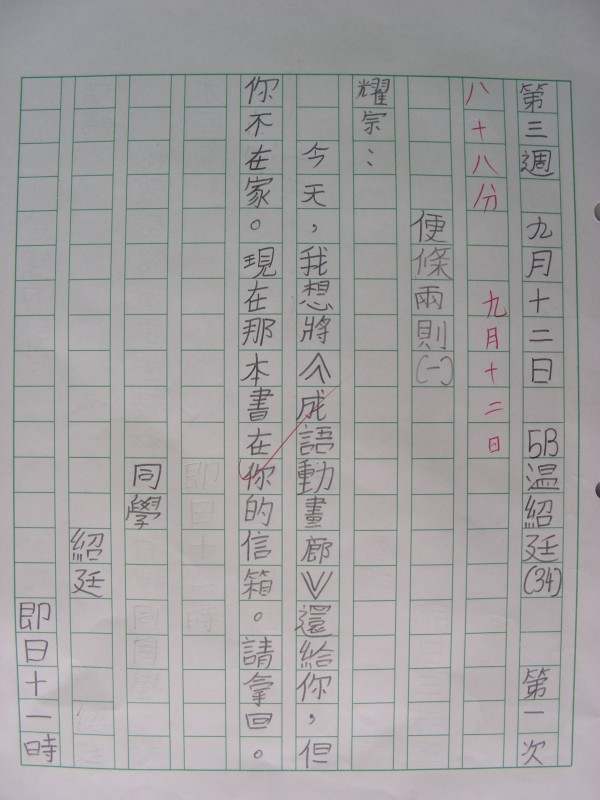 第三週 九月十二日 5B温紹廷(34) 第一次
八十八分 九月十二日
便條兩則(一)
耀宗：
今天，我想將《成語動畫廊》還給你，但
你不在家。現在那本書在你的信箱。請拿回。
同學
紹廷
即日十一時